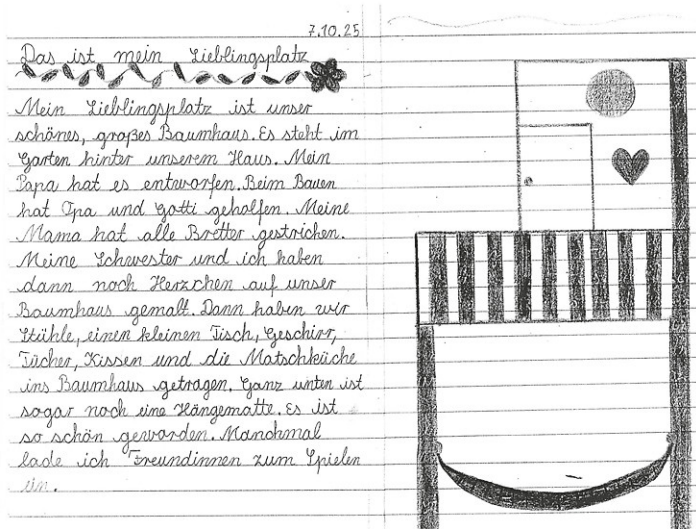 7.10.25
Das ist mein Lieblingsplatz
Mein Lieblingsplatz ist unser
schönes, großes Baumhaus. Es steht im
Garten hinter unserem Haus. Mein
Papa hat es entworfen. Beim Bauen
hat Opa und Gotti geholfen. Meine
Mama hat alle Bretter gestrichen.
Meine Schwester und ich haben
dann noch Herzchen auf unser
Baumhaus gemalt. Dann haben wir
Stühle, einen kleinen Tisch, Geschirr,
Tücher, Kissen und die Matschküche
ins Baumhaus getragen. Ganz unten ist
sogar noch eine Hängematte. Es ist
so schön geworden. Manchmal
lade ich Freundinnen zum Spielen
ein.